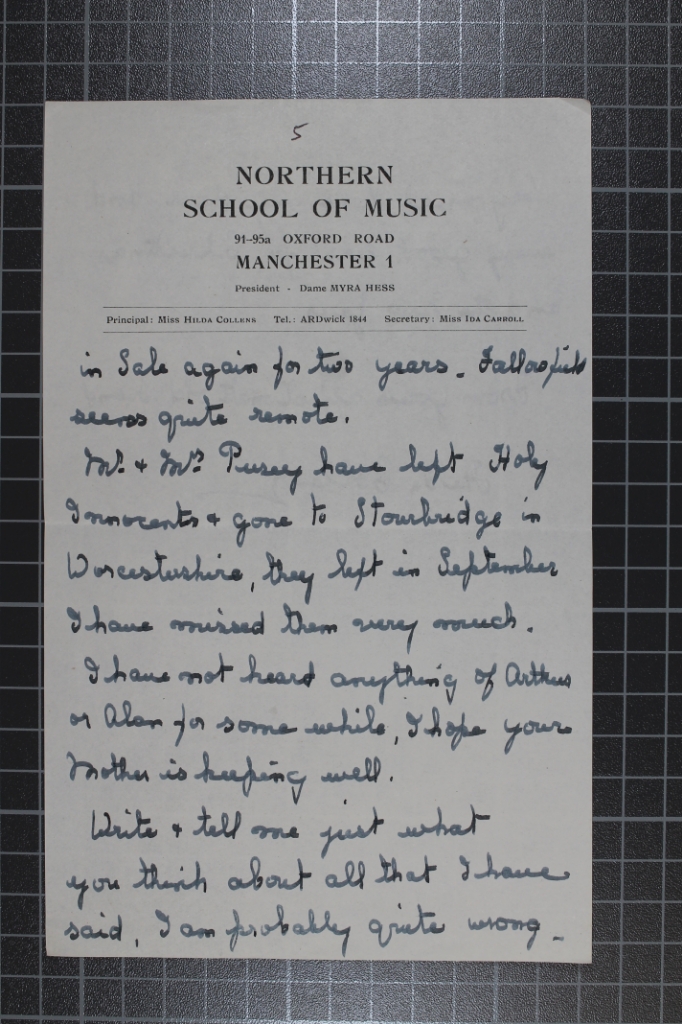 5
NORTHERN
SCHOOL OF MUSIC
91-95a OXFORD ROAD
MANCHESTER 1
President - Dame MYRA HESS
Principal: Miss HILDA COLLENS Tel.: ARDwick 1844 Secretary: Miss IDA CARROLL
in Sale again for two years. Fallowfield
seems quite remote.
Mr. & Mrs Pusey have left Holy
Innocents & gone to Stourbridge in
Worcestershire, they left in September
I have missed them very much.
I have not heard anything of Arthur
or Alan for some while, I hope your
Mother is keeping well.
Write & tell me just what
you think about all that I have
said, I am probably quite wrong -